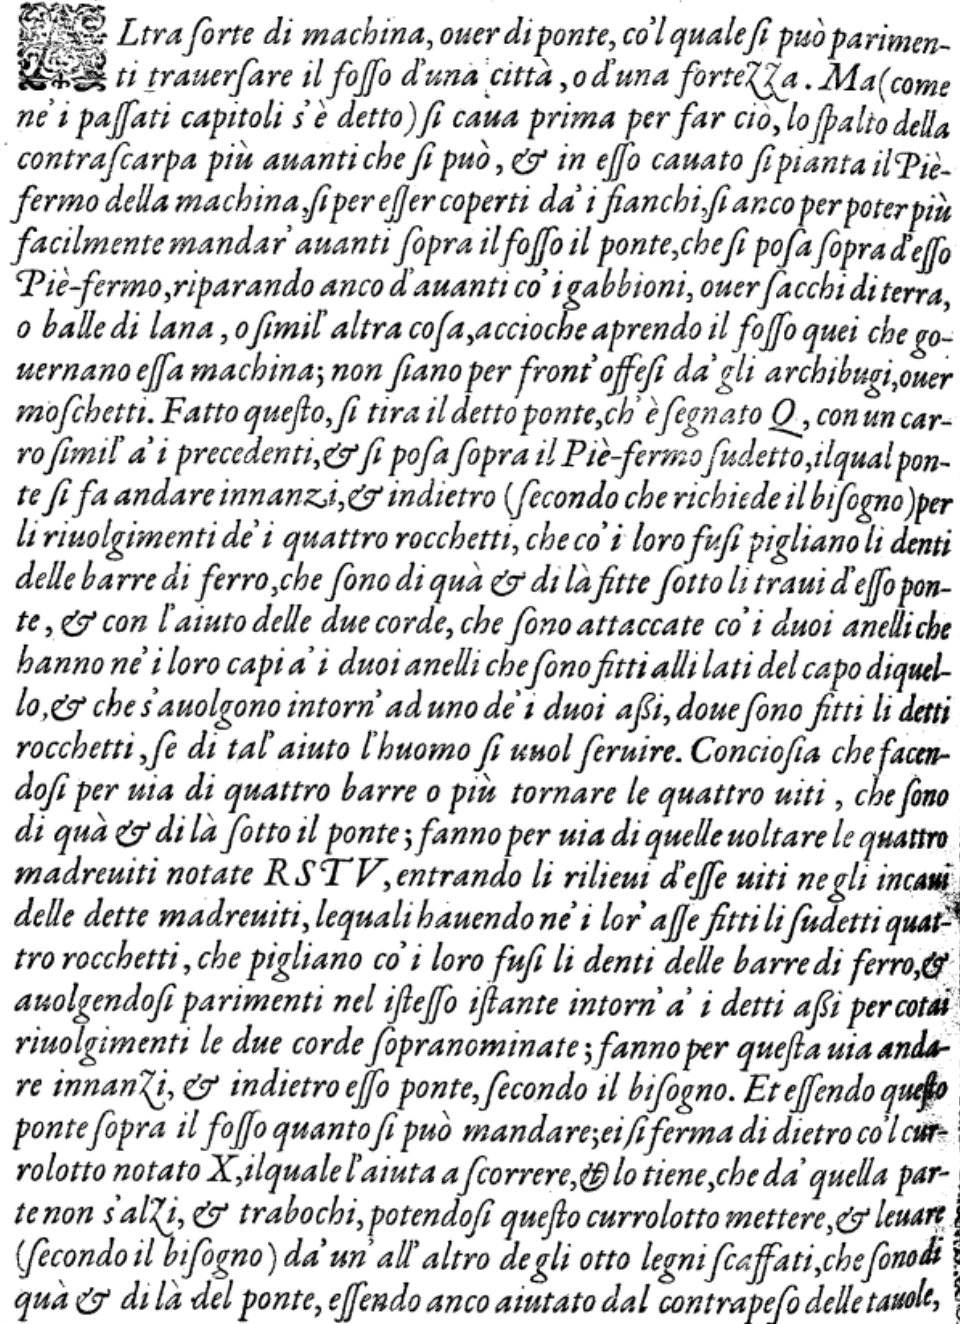 ALtra ſorte di machina, ouer di ponte, co'l quale ſi può parimen-
ti trauerſare il foſſo d'una città, o d'una fortezza. Ma (come
ne' i paſſati capitoli s'è detto) ſi caua prima per far ciò, lo ſpalto della
contraſcarpa più auanti che ſi può, & in eſſo cauato ſi pianta il Piè-
fermo della machina, ſi per eſſer coperti da' i fianchi, ſi anco per poter più
facilmente mandar' auanti ſopra il foſſo il ponte, che ſi poſa ſopra d'eſſo
Piè-fermo, riparando anco d'auanti co' i gabbioni, ouer ſacchi di terra,
o balle di lana, o ſimil' altra coſa, accioche aprendo il foſſo quei che go-
uernano eſſa machina; non ſiano per front' offeſi da' gli archibugi, ouer
moſchetti. Fatto queſto, ſi tira il detto ponte, ch' è ſegnato Q, con un car-
ro ſimil' a' i precedenti, & ſi poſa ſopra il Piè-fermo ſudetto, ilqual pon-
te ſi fa andare innanzi, & indietro (ſecondo che richiede il biſogno) per
li riuolgimenti de' i quattro rocchetti, che co' i loro fuſi pigliano li denti
delle barre di ferro, che ſono di quà & di là fitte ſotto li traui d'eſſo pon-
te, & con l'aiuto delle due corde, che ſono attaccate co' i duoi anelli che
hanno ne' i loro capi a' i duoi anelli che ſono fitti alli lati del capo di quel-
lo, & che s'auolgono intorn' ad uno de' i duoi aßi, doue ſono fitti li detti
rocchetti, ſe di tal' aiuto l'huomo ſi uuol ſeruire. Concioſia che facen-
doſi per uia di quattro barre o più tornare le quattro uiti, che ſono
di quà & di là ſotto il ponte; fanno per uia di quelle uoltare le quattro
madreuiti notate R S T V, entrando li rilieui d'eſſe uiti ne gli incaui
delle dette madreuiti, lequali hauendo ne' i lor' aſſe fitti li ſudetti quat-
tro rocchetti, che pigliano co' i loro fuſi li denti delle barre di ferro, &
auolgendoſi parimenti nel iſteſſo iſtante intorn' a' i detti aßi per cotai
riuolgimenti le due corde ſopranominate; fanno per queſta uia anda-
re innanzi, & indietro eſſo ponte, ſecondo il biſogno. Et eſſendo queſto
ponte ſopra il foſſo quanto ſi può mandare; ei ſi ferma di dietro co'l cur-
rolotto notato X, ilquale l'aiuta a ſcorrere, & lo tiene, che da' quella par-
te non s'alzi, & trabochi, potendoſi queſto currolotto mettere, & leuare
(ſecondo il biſogno) da' un' all' altro de gli otto legni ſcaffati, che ſono di
quà & di là del ponte, eſſendo anco aiutato dal contrapeſo delle tauole,